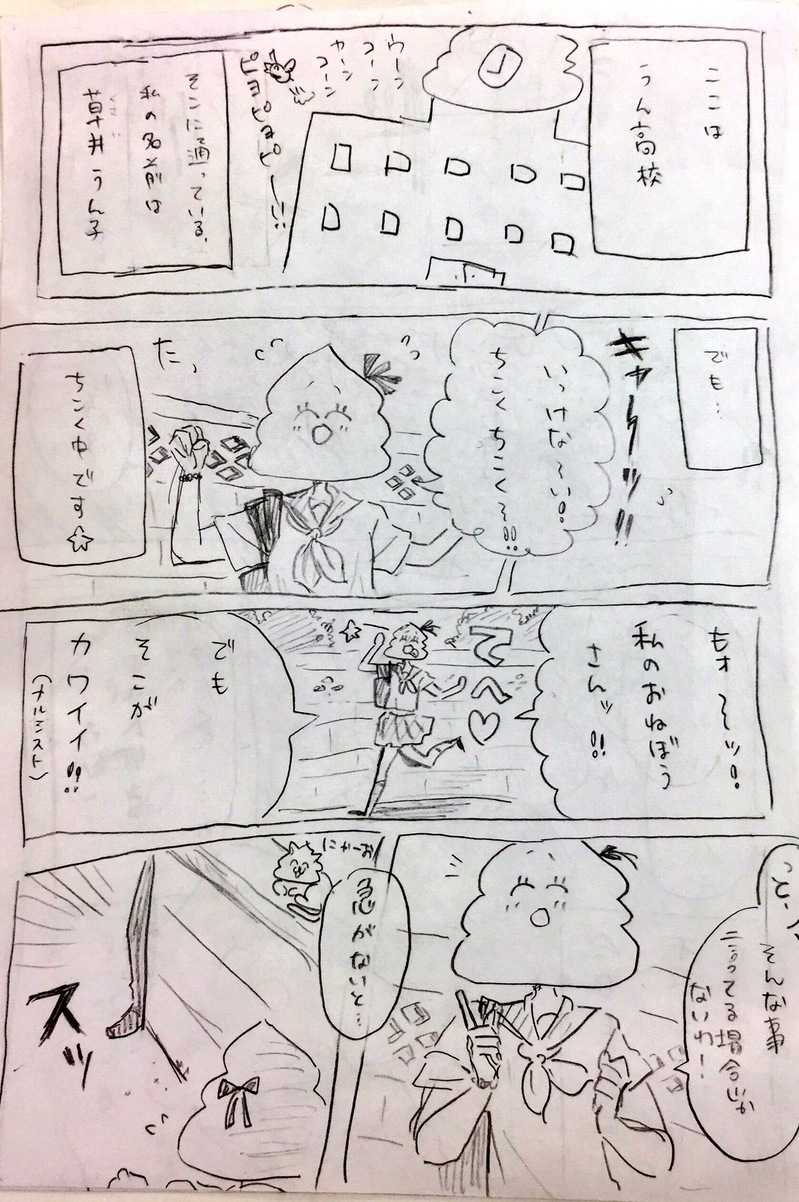 ここは
うん高校
ウーン
コーン
カーン
コーン
ピヨピヨピーー!!
そこに通っている、
私の名前は
草井うん子
くさい
でも…
キャーーッッ!!
いっけな〜い!
ちこくちこく〜!!
た、
ちこく中です☆
もォ〜ッ!
私のおねぼう
さんッ!!
てへ♡
でも
そこが
カワイイ!!
(ナルシスト)
っと、
そんな事
言ってる場合じゃ
ないわ!
急がないと…
にゃーお
スッ